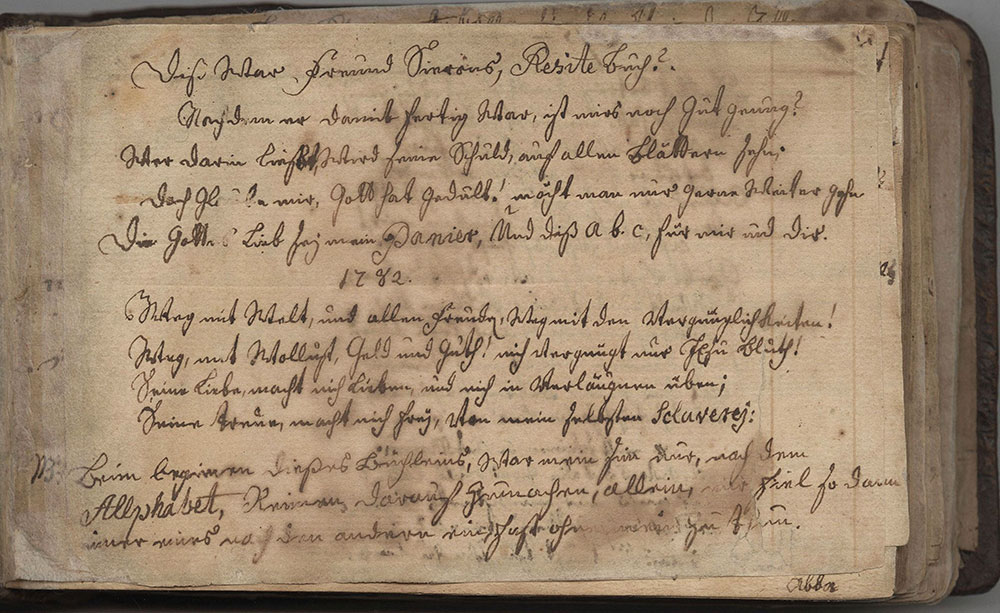 Diß War Freund Sierons, Resite buch?.
Nachdem er damit fertig War, ist mirs noch Gut genug?
Wer darin ließt, Wird seine Schuld, auf allen Blättern sehn;
Doch mir, Gott hat Gedult! möcht man nur gerne Weiter gehn
Die Gottes Lieb sey mein Panier, Und diß A. b. c, für mir und dir.
1782.
Weg mit Welt, und allen Freuden, Weg mit den Vergnüglichkeiten!
Weg, mit Wollust, Geld und Guth! mich Vergnügt nur Jesu Bluth!
Seine Liebe, macht mich Lieben, und mich in Verläugnen üben;
Seine Treue, macht mich frey, Von mein selbsten Sclaverej:
NB: Beim beginnen dießes Büchleins, War mein Sin nur, nach dem
Allphabet, Reimen darauf zumachen, allein, fiel so dann
imer eines nach dem andern ein, ohne zu thun.
Abba